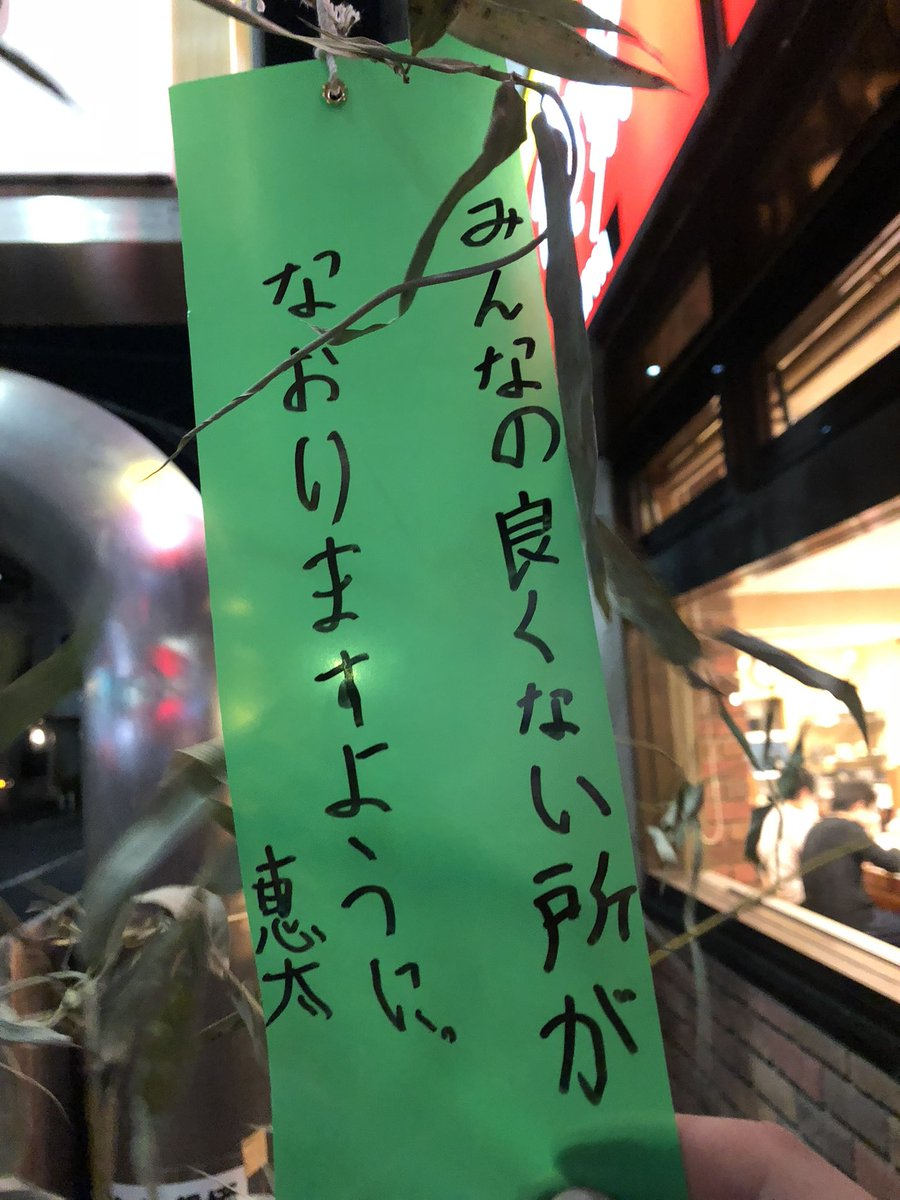 みんなの良くない所が
なおりますように。
恵太